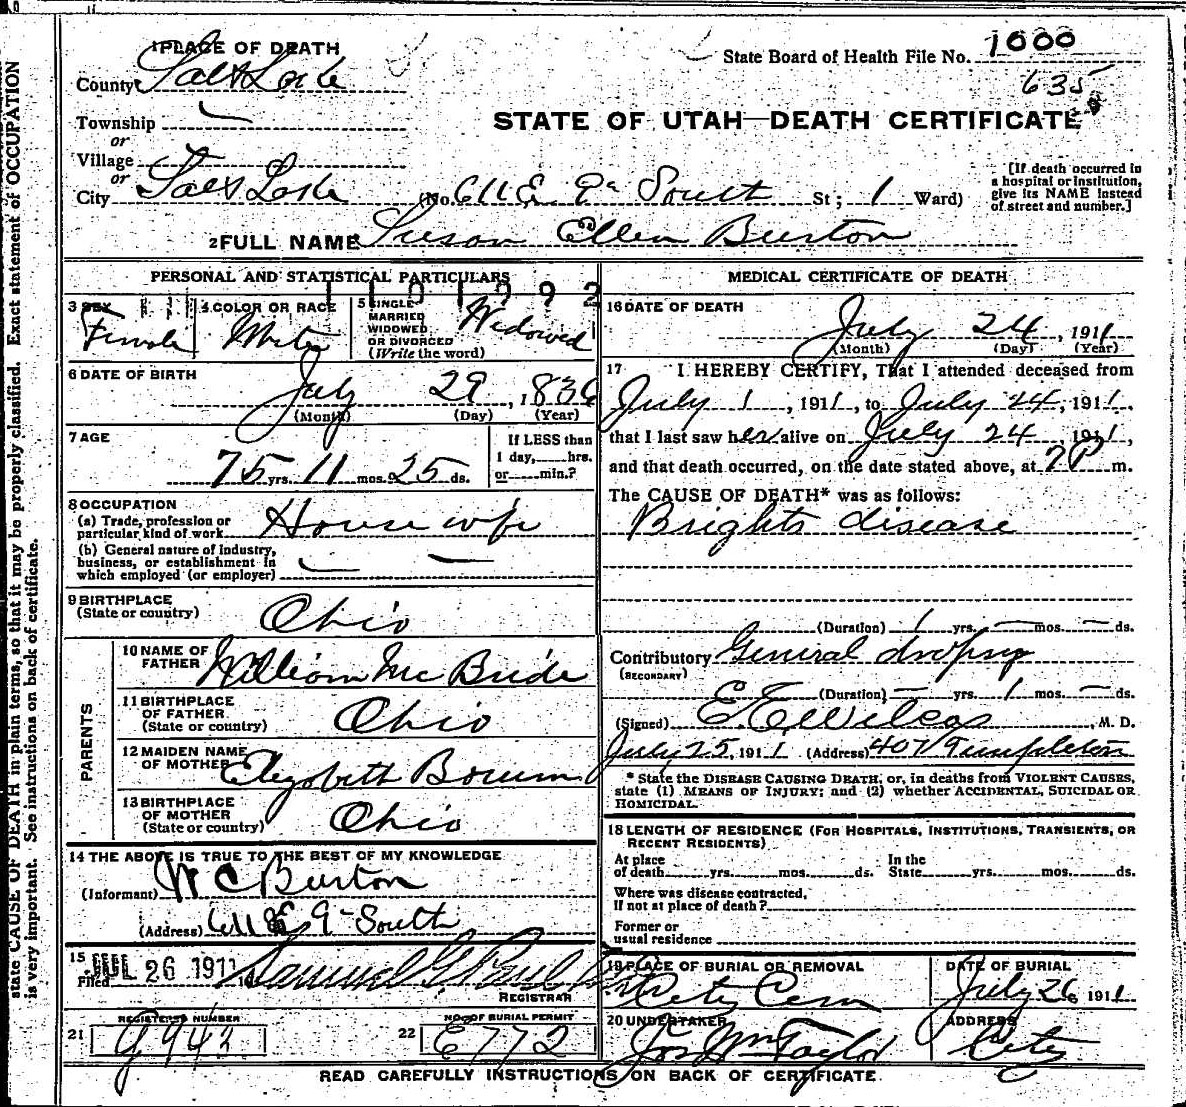 1 PLACE OF DEATH
State Board of Health File No. 1000
County Salt Lake
635
Township —
STATE OF UTAH—DEATH CERTIFICATE
or
Village
or
City Salt Lake (No. 611 E 9" South St; 1 Ward)
[If death occurred in a hospital or institution, give its NAME instead of street and number.]
2 FULL NAME Susan Ellen Burton
PERSONAL AND STATISTICAL PARTICULARS
3 SEX Female
4 COLOR OR RACE White
5 SINGLE MARRIED WIDOWED OR DIVORCED (Write the word) Widowed
6 DATE OF BIRTH July 29, 1836
(Month) (Day) (Year)
7 AGE
75 yrs. 11 mos. 25 ds.
If LESS than 1 day, hrs. or min.?
8 OCCUPATION
(a) Trade, profession or particular kind of work House wife
(b) General nature of industry, business, or establishment in which employed (or employer) — —
9 BIRTHPLACE
(State or country) Ohio
PARENTS
10 NAME OF FATHER William McBride
11 BIRTHPLACE OF FATHER (State or country) Ohio
12 MAIDEN NAME OF MOTHER Elizabeth
13 BIRTHPLACE OF MOTHER (State or country) Ohio
14 THE ABOVE IS TRUE TO THE BEST OF MY KNOWLEDGE
(Informant) W C Burton
(Address) 611 E 9 - South
15 Filed JUL 26 1911 Samuel G. Paul
REGISTRAR
21 REGISTERED NUMBER G 942
22 NO. OF BURIAL PERMIT E 772
MEDICAL CERTIFICATE OF DEATH
16 DATE OF DEATH
July 24, 1911
(Month) (Day) (Year)
17 I HEREBY CERTIFY, That I attended deceased from
July 1, 1911, to July 24, 1911,
that I last saw her alive on July 24, 1911,
and that death occurred, on the date stated above, at 7 P m.
The CAUSE OF DEATH* was as follows:
Brights disease
(Duration) 1 yrs. — mos. — ds.
Contributory General dropsy
(SECONDARY)
(Duration) — yrs. 1 mos. — ds.
(Signed) E. E. Wilcox, M. D.
July 25, 1911 (Address) 407 Templeton
* State the DISEASE CAUSING DEATH, or, in deaths from VIOLENT CAUSES, state (1) MEANS OF INJURY; and (2) whether ACCIDENTAL, SUICIDAL OR HOMICIDAL.
18 LENGTH OF RESIDENCE (FOR HOSPITALS, INSTITUTIONS, TRANSIENTS, OR RECENT RESIDENTS)
At place of death yrs. mos. ds. In the State yrs. mos. ds.
Where was disease contracted, If not at place of death?
Former or usual residence
19 PLACE OF BURIAL OR REMOVAL City Cem
DATE OF BURIAL July 26 1911
20 UNDERTAKER Jos Wm Taylor
ADDRESS City
READ CAREFULLY INSTRUCTIONS ON BACK OF CERTIFICATE
state CAUSE OF DEATH in plain terms, so that it may be properly classified. Exact statement of OCCUPATION
is very important. See instructions on back of certificate.